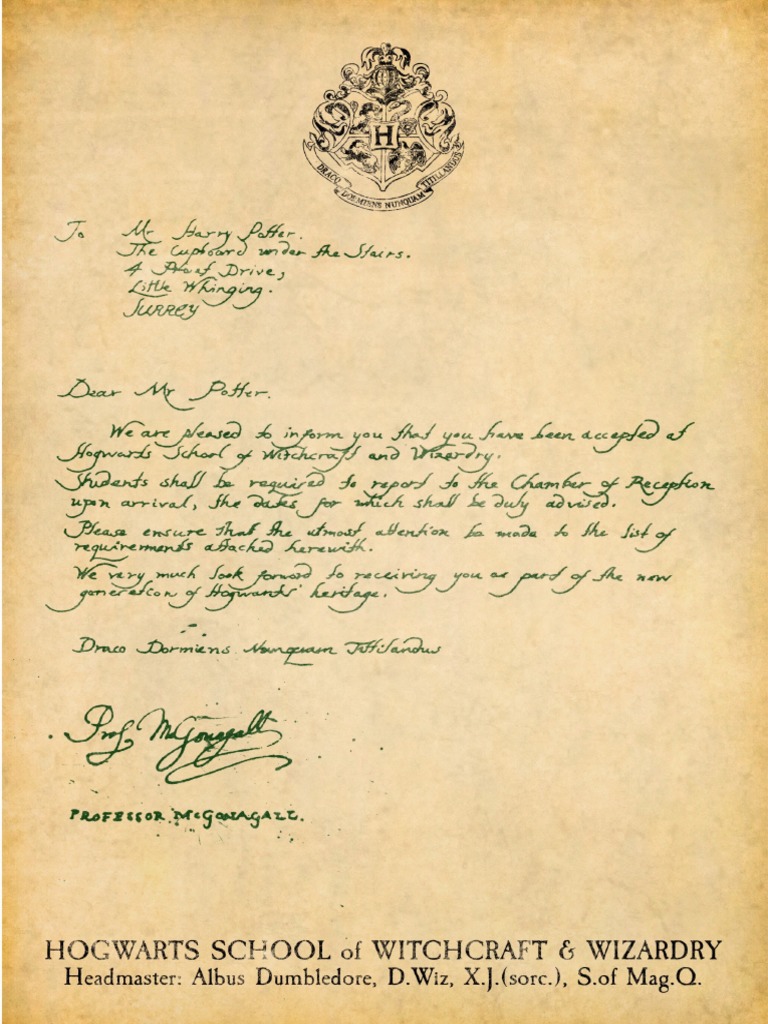 H
DRACO DORMIENS NUNQUAM TITILLANDUS
To Mr Harry Potter.
The Cupboard under the Stairs.
4 Privet Drive,
Little Whinging.
SURREY
Dear Mr Potter.
We are pleased to inform you that you have been accepted at
Hogwarts School of Witchcraft and Wizardry.
Students shall be required to report to the Chamber of Reception
upon arrival, the dates for which shall be duly advised.
Please ensure that the utmost attention be made to the list of
requirements attached herewith.
We very much look forward to receiving you as part of the new
generation of Hogwarts' heritage.
Draco Dormiens Nunquam Tittilandus
Prof. McGonagall
PROFESSOR McGONAGALL.
HOGWARTS SCHOOL of WITCHCRAFT & WIZARDRY
Headmaster: Albus Dumbledore, D.Wiz, X.J.(sorc.), S.of Mag.Q.